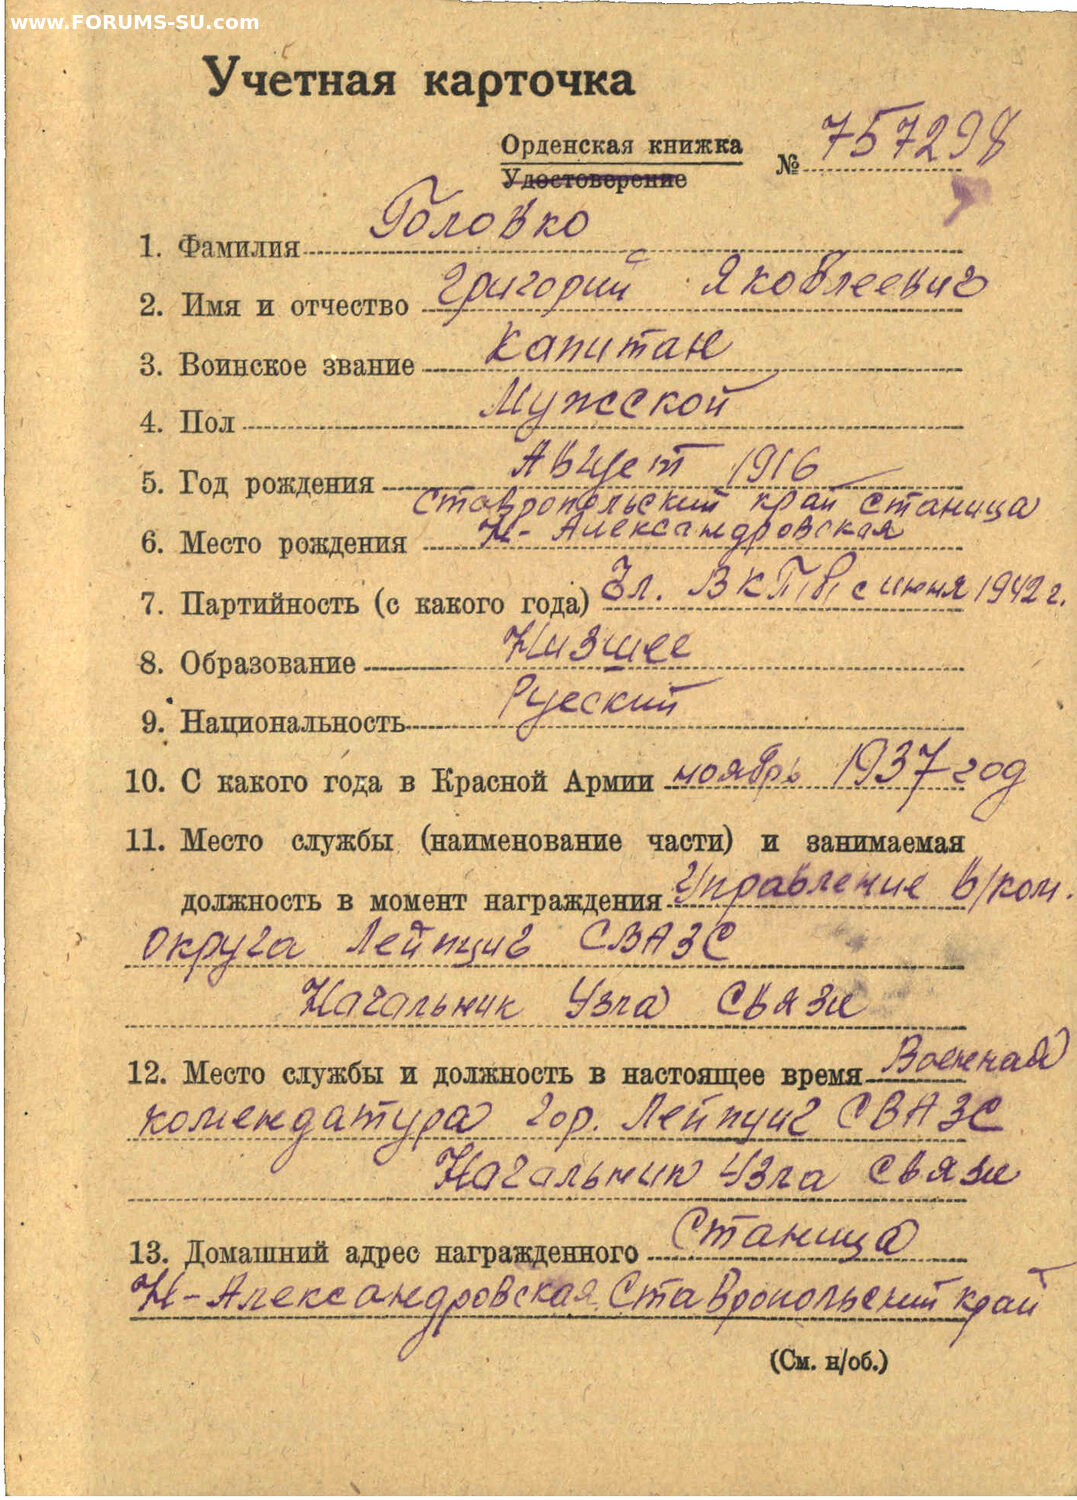 www.FORUMS-SU.com
Учетная карточка
Орденская книжка
Удостоверение
№ 757298
1. Фамилия Головко
2. Имя и отчество Григорий Яковлеевич
3. Воинское звание Капитан
4. Пол Мужской
5. Год рождения Август 1916
Ставропольский край станица
6. Место рождения Н-Александровская
7. Партийность (с какого года) Чл. ВКП(в) с июня 1942 г.
8. Образование Низшее
9. Национальность Русский
10. С какого года в Красной Армии ноябрь 1937 год
11. Место службы (наименование части) и занимаемая
должность в момент награждения Управление в/ком.
округа Лейпциг СВАЗС
Начальник Узла Связи
12. Место службы и должность в настоящее время Военная
комендатура гор. Лейпциг СВАЗС
Начальник Узла связи
13. Домашний адрес награжденного Станица
Н-Александровская Ставропольский край
(См. н/об.)